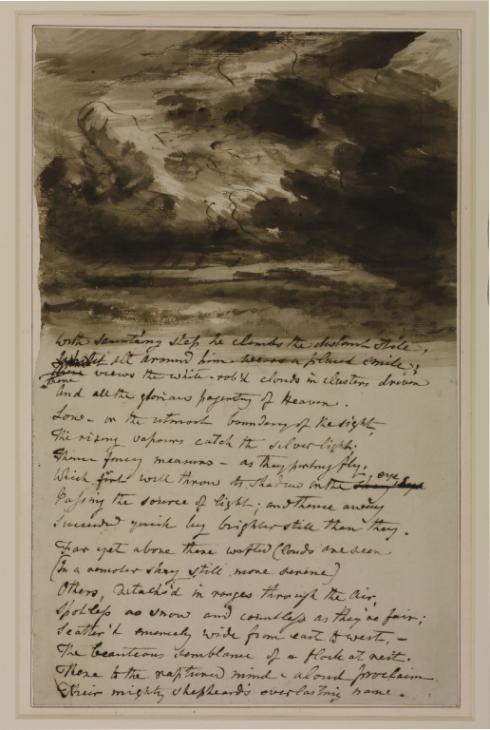 With sauntering step he climbs the distant stile,
Whilst all around him wears a placid smile;
There views the white-rob'd clouds in clusters driven
And all the glorious pageantry of Heaven.
Low - on the utmost boundary of the sight,
The rising vapours catch the silver light;
Thence fancy measures - as they parting fly,
Which first will throw its shadow on the eye,
Passing the source of light; and thence away
Succeeded quick by brighter still than they.
Far yet above these wafted Clouds are seen
(In a remoter sky, still more serene)
Others, detach'd in ranges through the Air,
Spotless as snow and countless as they're fair;
Scatter'd immensely wide from east to west, -
The beauteous semblance of a flock at rest.
These to the raptured mind - aloud proclaim
Their mighty shepherd's everlasting name.